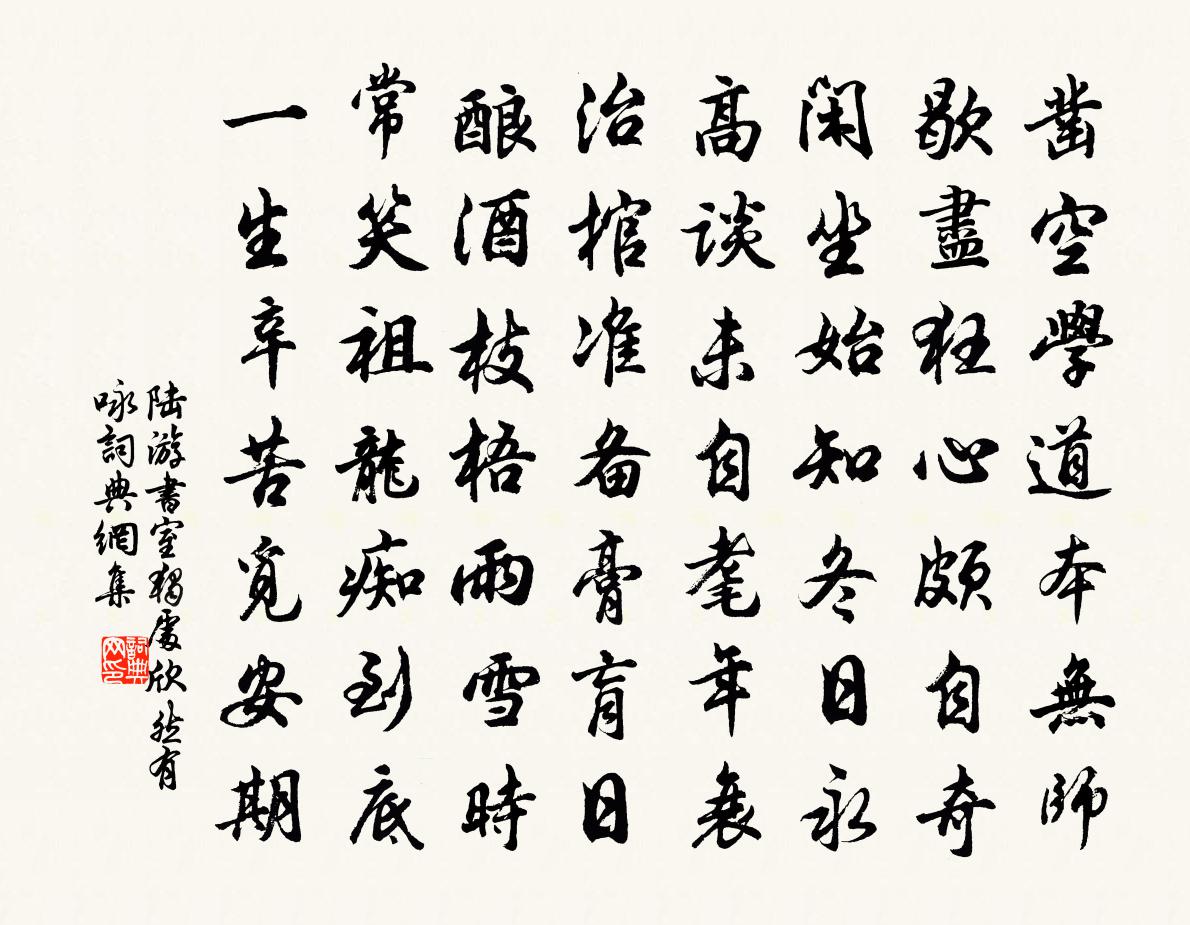 凿空學道本無師
歇盡狂心頗自奇
閑坐始知冬日永
高談未自耄年衰
治棺准备膏肓日
酿酒枝梧雨雪時
常笑祖龍痴到底
一生辛苦覓安期
陆游書室獨處欣然有
咏詞典網集
詞典网印